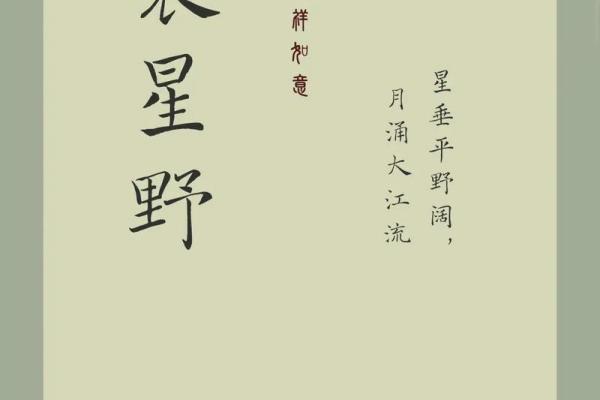 星垂平野阔，
月涌大江流
祥如意
星野